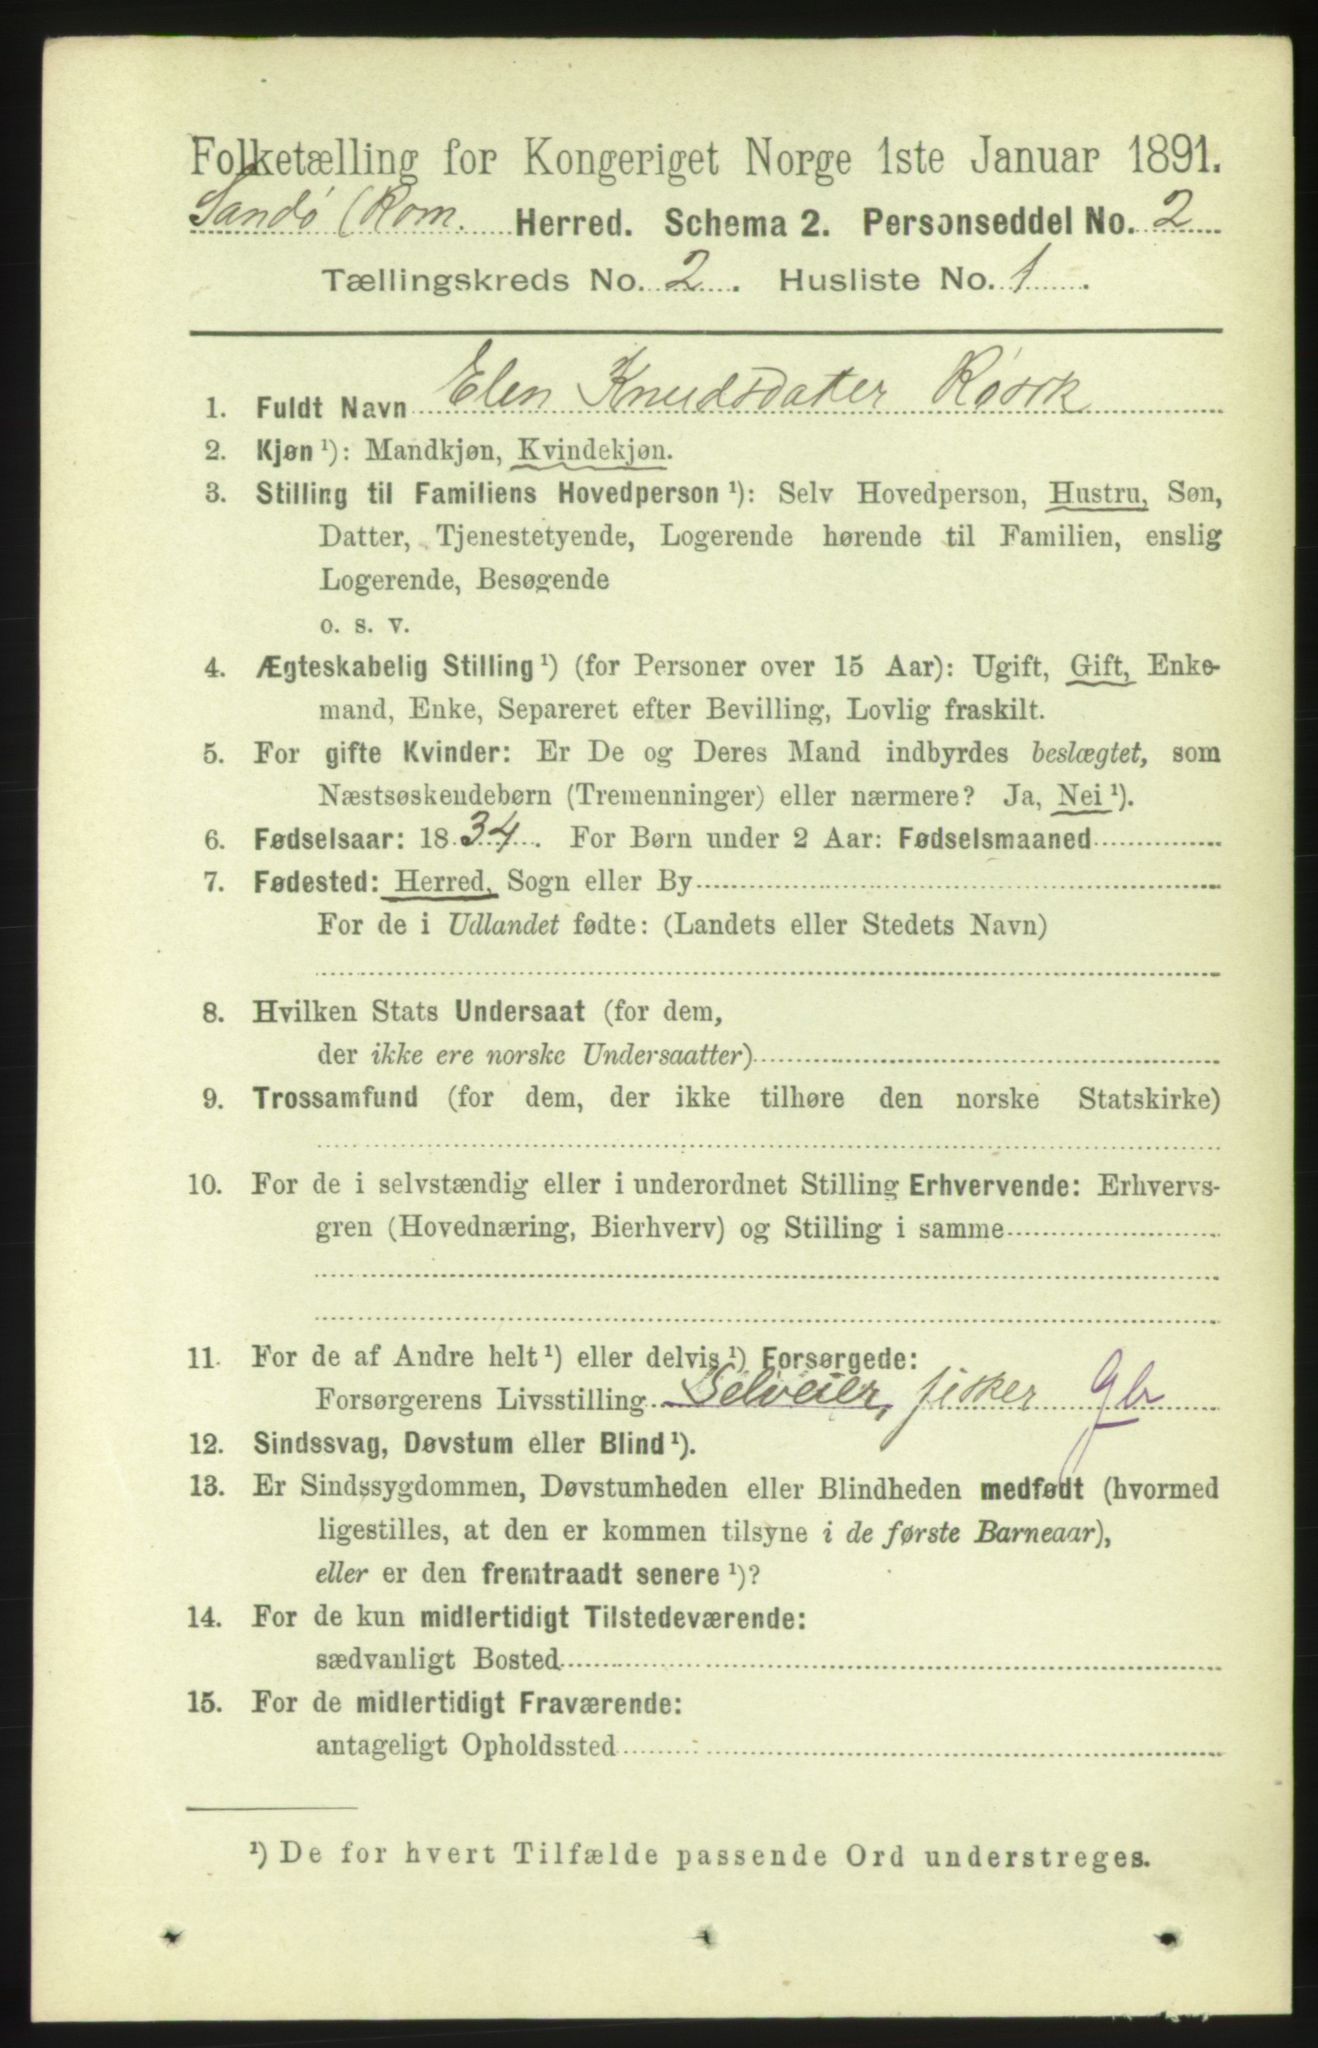 Folketælling for Kongeriget Norge 1ste Januar 1891.
Sandø (Rom. Herred. Schema 2. Personseddel No. 2
Tællingskreds No. 2. Husliste No. 1.
1. Fuldt Navn Elen Knudsdatter
2. Kjøn ¹): Mandkjøn, Kvindekjøn.
3. Stilling til Familiens Hovedperson ¹): Selv Hovedperson, Hustru, Søn,
Datter, Tjenestetyende, Logerende hørende til Familien, enslig
Logerende, Besøgende
o. s. v.
4. Ægteskabelig Stilling ¹) (for Personer over 15 Aar): Ugift, Gift, Enke-
mand, Enke, Separeret efter Bevilling, Lovlig fraskilt.
5. For gifte Kvinder: Er De og Deres Mand indbyrdes beslægtet, som
Næstsøskendebørn (Tremenninger) eller nærmere? Ja, Nei ¹).
6. Fødselsaar: 1834. For Børn under 2 Aar: Fødselsmaaned
7. Fødested: Herred, Sogn eller By
For de i Udlandet fødte: (Landets eller Stedets Navn)
8. Hvilken Stats Undersaat (for dem,
der ikke ere norske Undersaatter)
9. Trossamfund (for dem, der ikke tilhøre den norske Statskirke)
10. For de i selvstændig eller i underordnet Stilling Erhvervende: Erhvervs-
gren (Hovednæring, Bierhverv) og Stilling i samme
11. For de af Andre helt ¹) eller delvis ¹) Forsørgede:
Forsørgerens Livsstilling Selveier, fisker Gb
12. Sindssvag, Døvstum eller Blind ¹).
13. Er Sindssygdommen, Døvstumheden eller Blindheden medfødt (hvormed
ligestilles, at den er kommen tilsyne i de første Barneaar),
eller er den fremtraadt senere ¹)?
14. For de kun midlertidigt Tilstedeværende:
sædvanligt Bosted
15. For de midlertidigt Fraværende:
antageligt Opholdssted
¹) De for hvert Tilfælde passende Ord understreges.